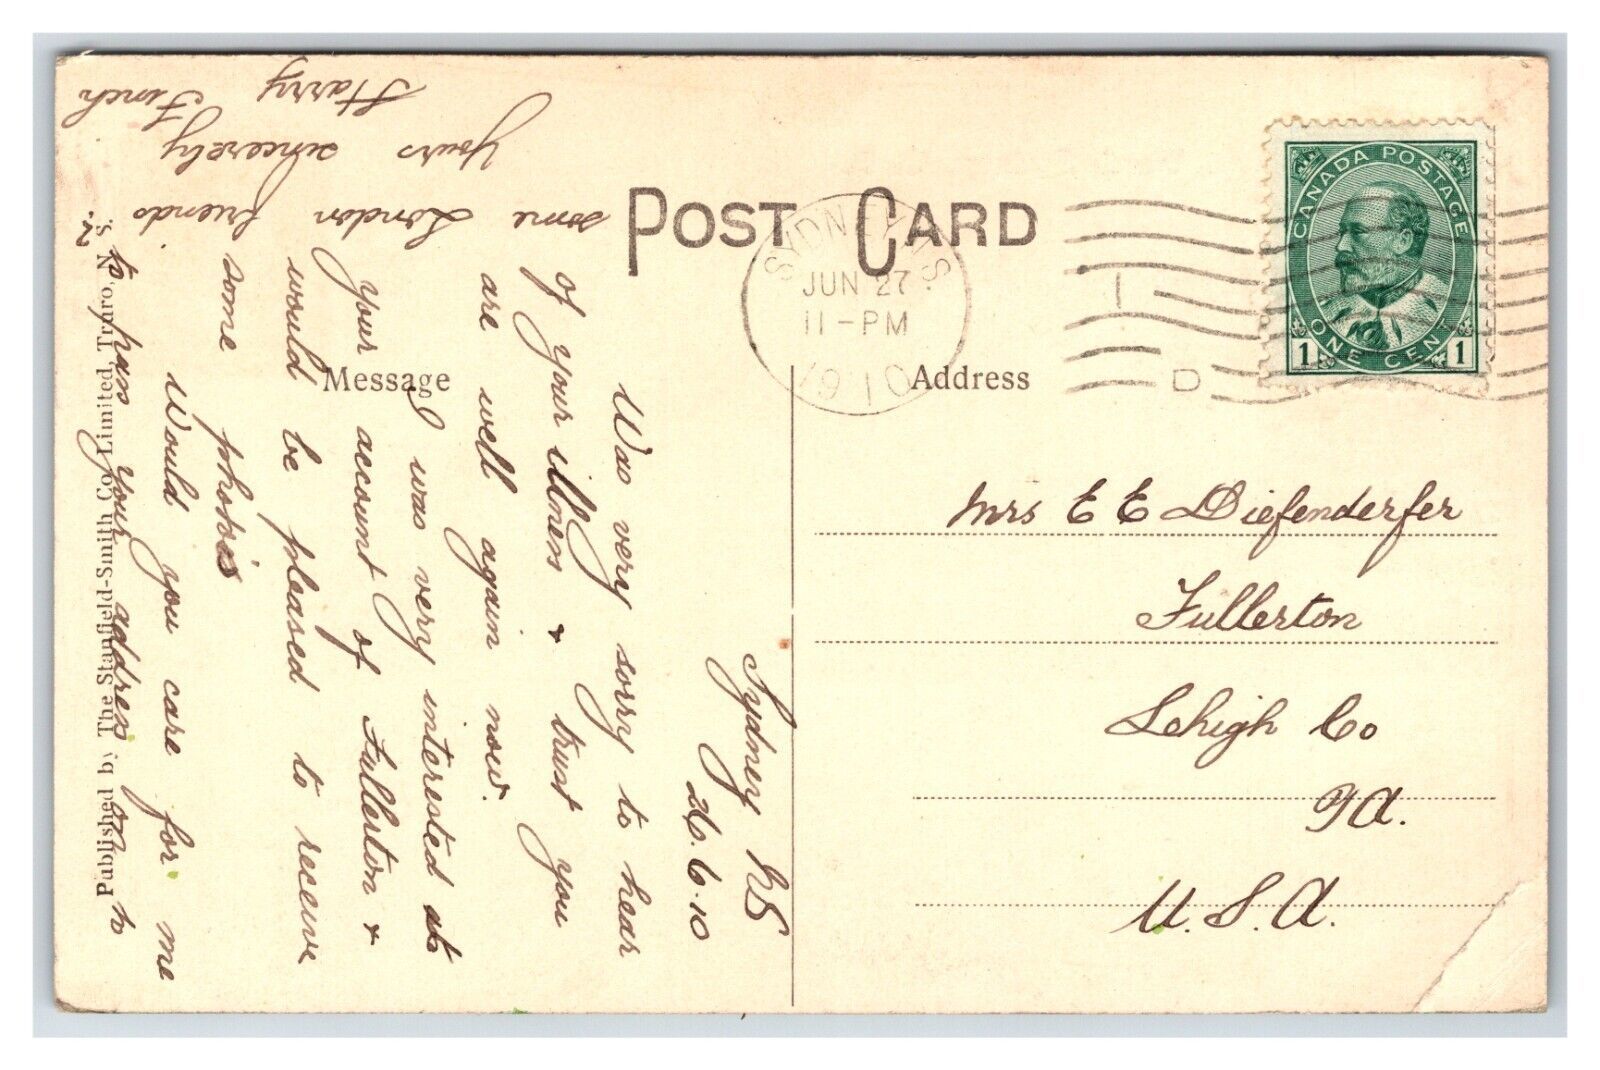 POST CARD
SYDNEY N.S.
JUN 27
11-PM
1910
1
D
CANADA POSTAGE
ONE CENT
1 1
Message
Address
Mrs E E Diefenderfer
Fullerton
Lehigh Co
PA.
U.S.A.
Sydney NS
26.6.10
Was very sorry to hear
of your illness & trust you
are well again now.
I was very interested at
your account of Fullerton &
would be pleased to receive
some photo's
Would you care for me
to pass your address to
some London friends
yours sincerely
Harry Finch
Published by The Stanfield-Smith Co. Limited, Truro, N. S.